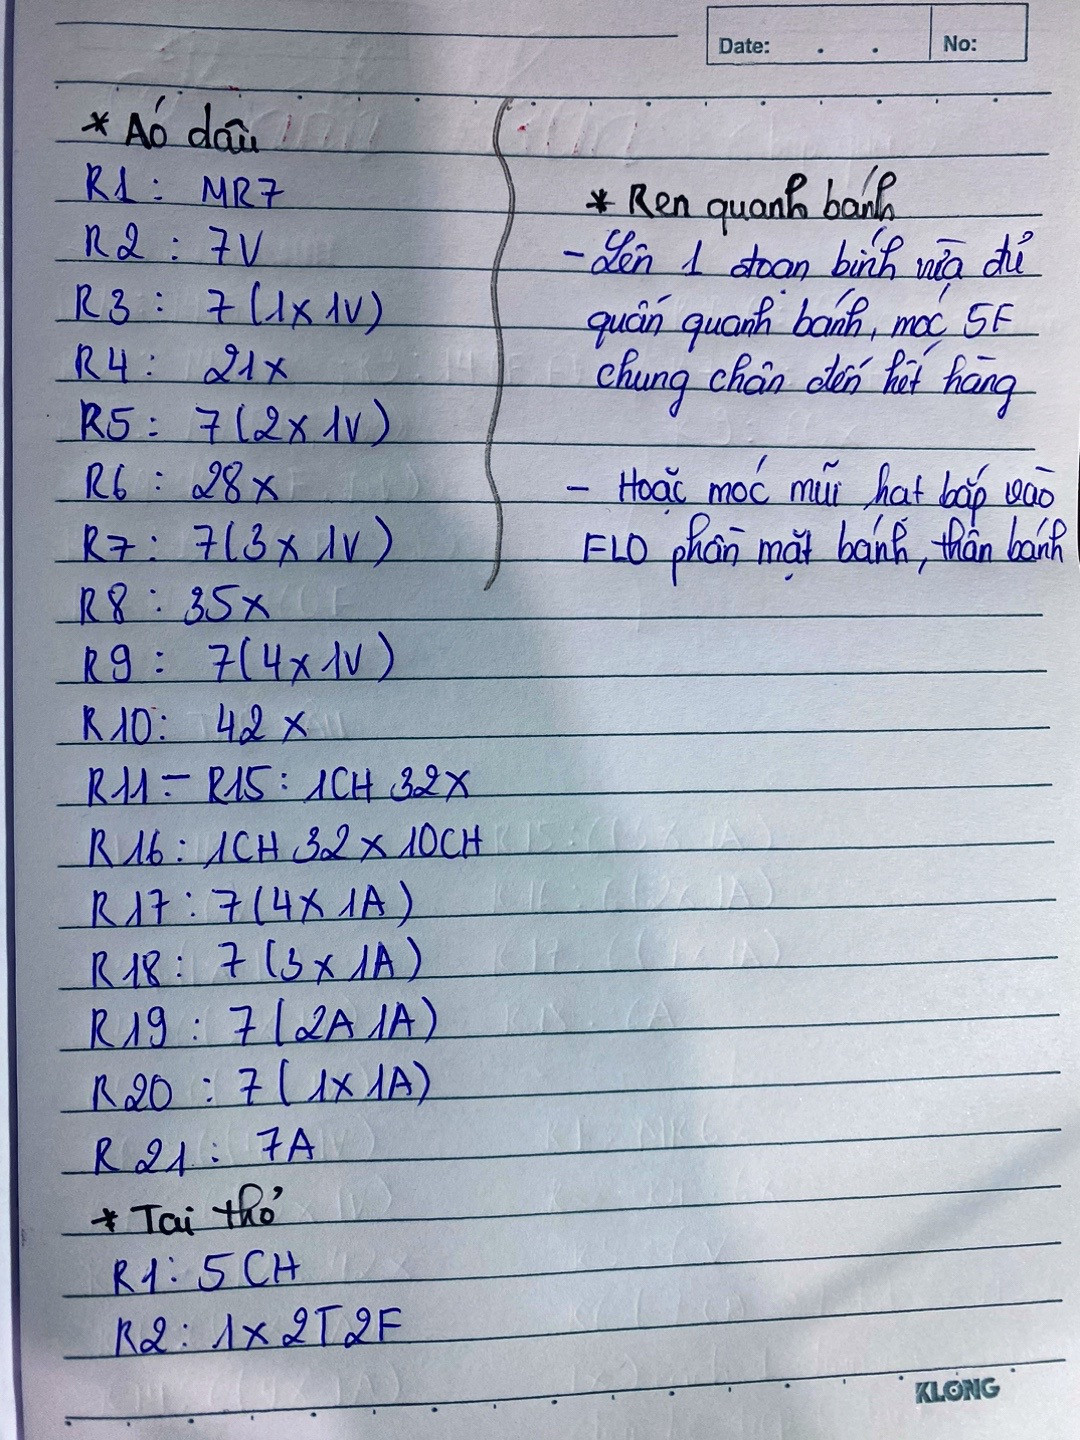 Date: . . No:
* Áo dâu
R1: MR7
R2: 7V
R3: 7(1x 1V)
R4: 21x
R5: 7(2x 1V)
R6: 28x
R7: 7(3x 1V)
R8: 35x
R9: 7(4x 1V)
R10: 42x
R11 - R15: 1CH 32x
R16: 1CH 32x 10CH
R17: 7(4x 1A)
R18: 7(3x 1A)
R19: 7(2A 1A)
R20: 7(1x 1A)
R21: 7A
* Tai thỏ
R1: 5CH
R2: 1x 2T 2F
* Ren quanh bánh
- Lên 1 đoạn bính vừa đủ
quấn quanh bánh, móc 5F
chung chân đến hết hàng
- Hoặc móc mũi hạt bắp vào
FLO phần mặt bánh, thân bánh
KLONG